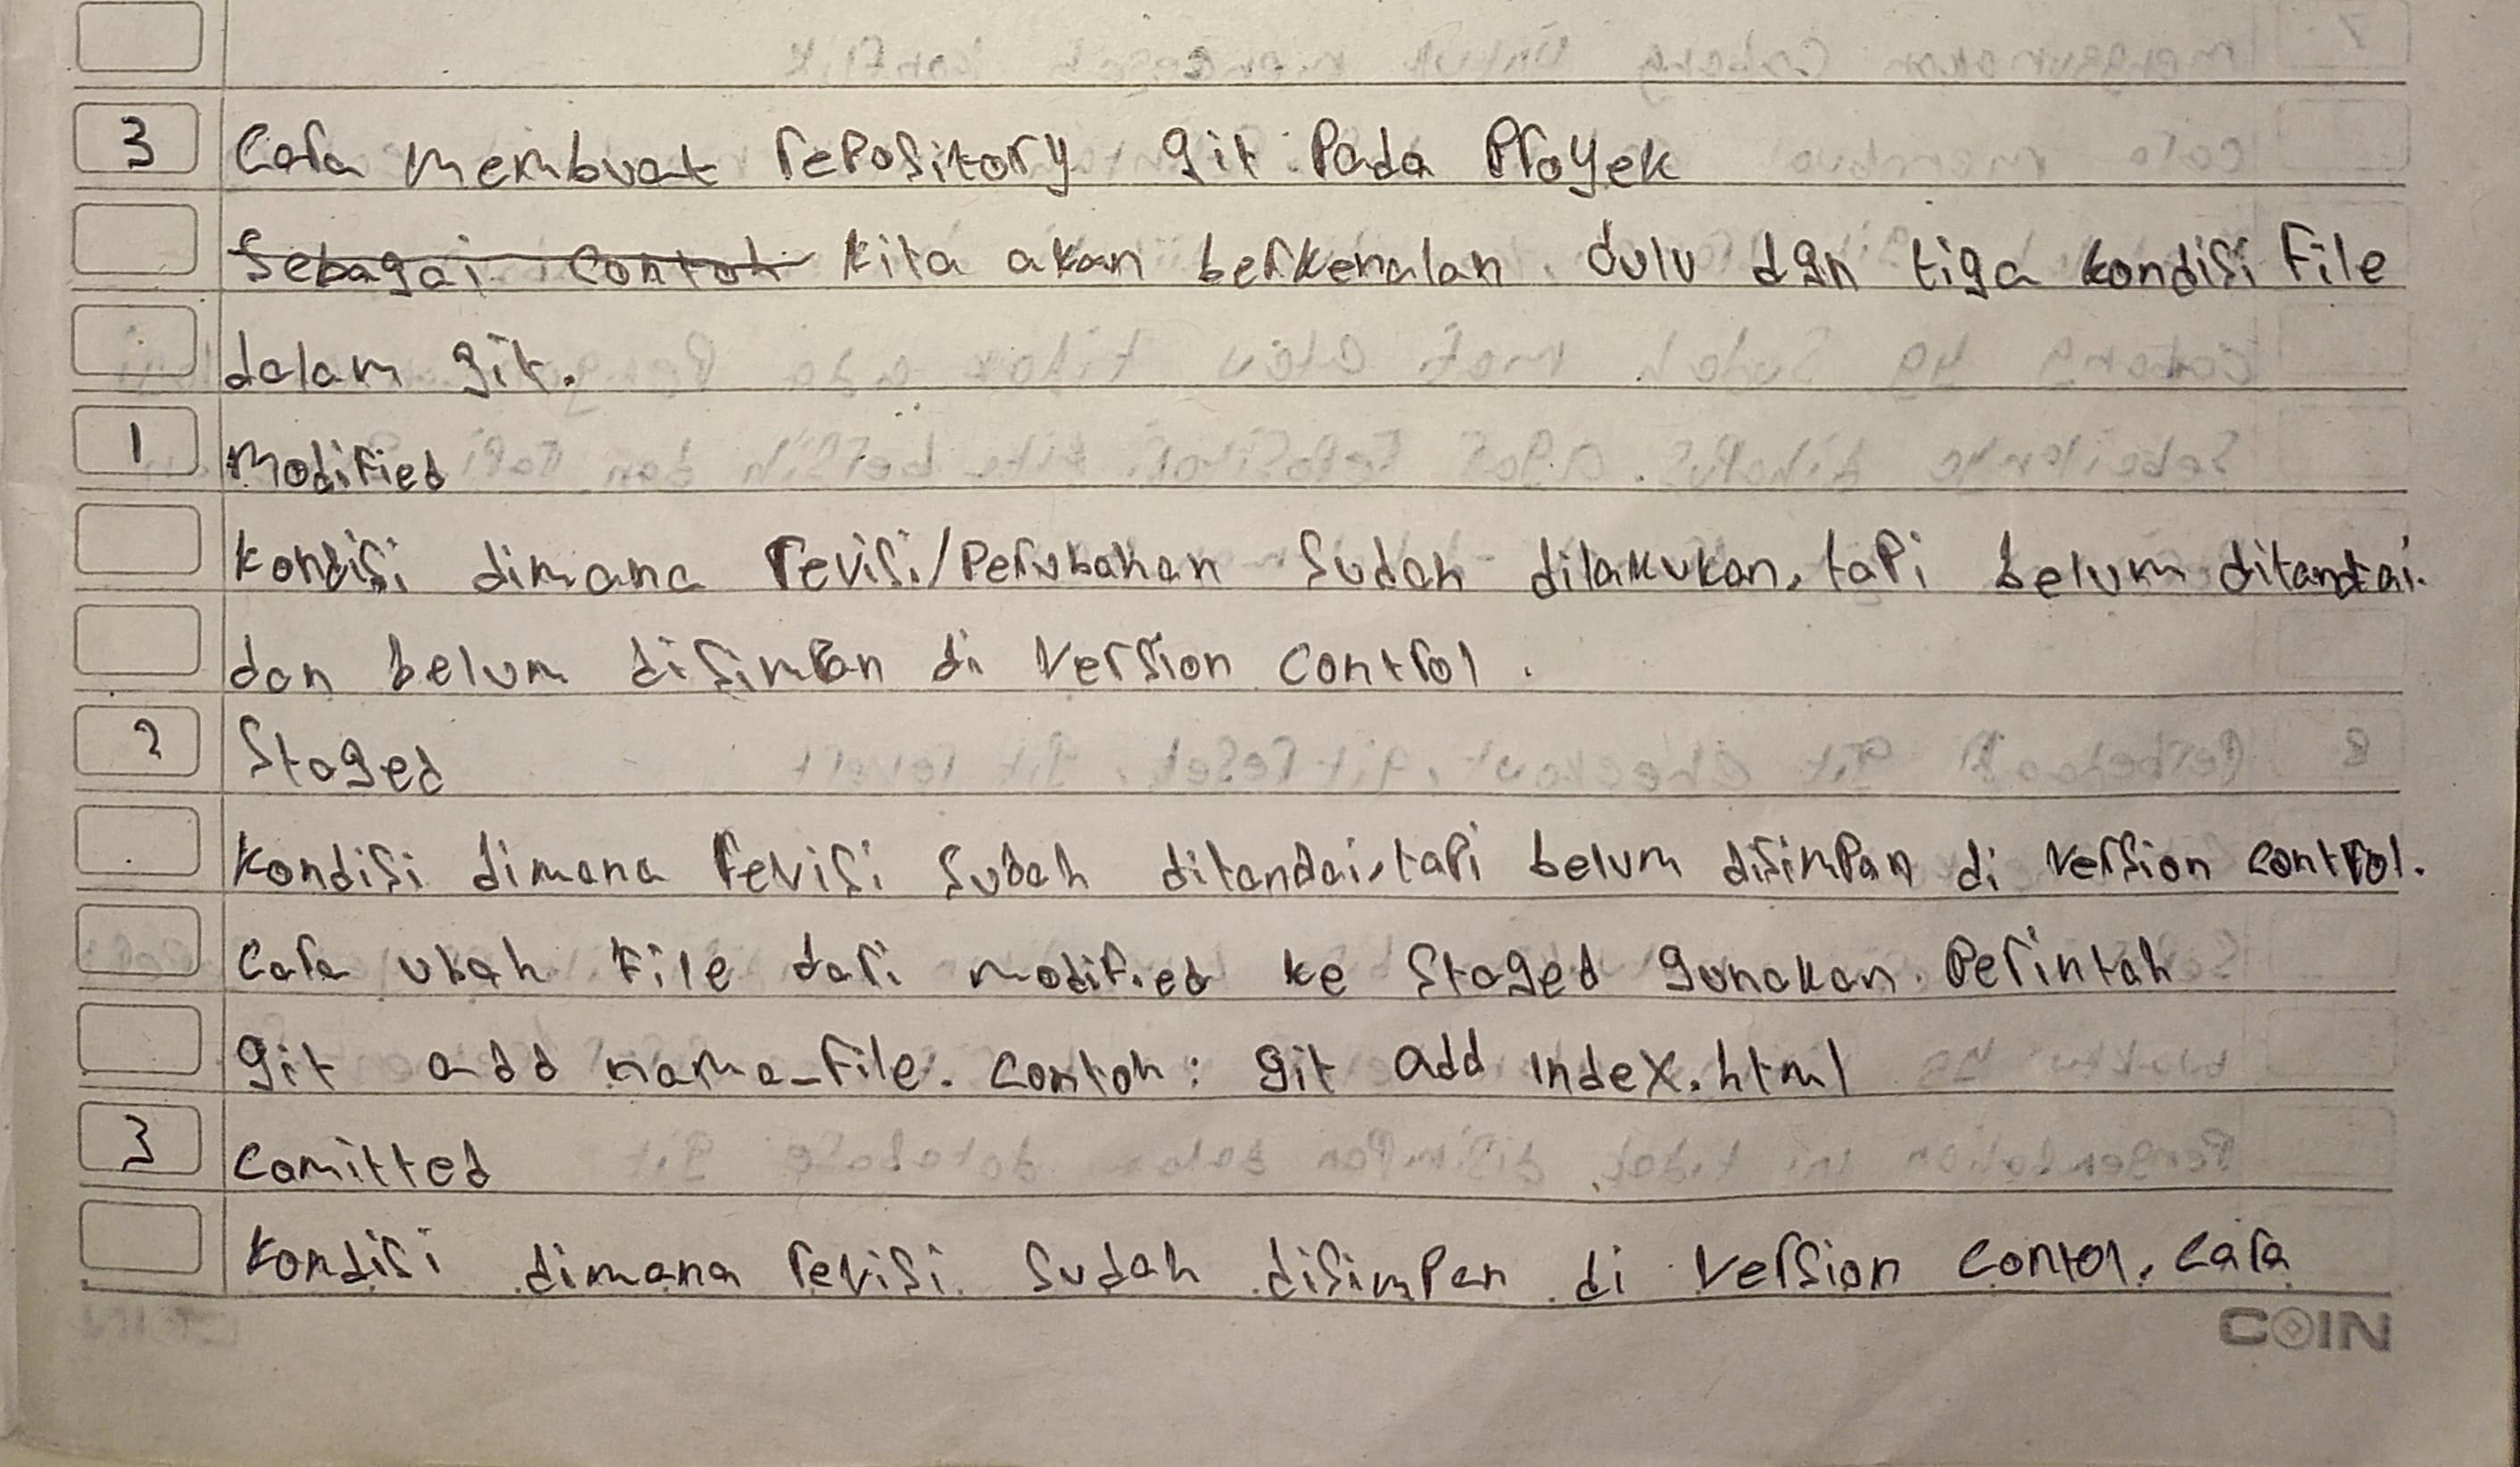 3 Cara membuat repository git pada proyek
Sebagai contoh kita akan berkenalan dulu dgn tiga kondisi file
dalam git.
1 Modified
kondisi dimana revisi/perubahan sudah dilakukan, tapi belum ditandai
dan belum disimpan di version control.
2 Staged
kondisi dimana revisi sudah ditandai, tapi belum disimpan di version control.
Cara ubah file dari modified ke staged gunakan perintah
git add nama_file. contoh: git add index.html
3 Comitted
kondisi dimana revisi sudah disimpan di version contol, cara
COIN